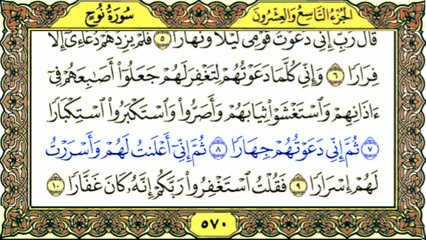 سُورَةُ نُوحٍ
الجُزْءُ التَّاسِعُ وَالعِشْرُونَ
قَالَ رَبِّ إِنِّي دَعَوْتُ قَوْمِي لَيْلًا وَنَهَارًا ٥ فَلَمْ يَزِدْهُمْ دُعَاءِىٓ إِلَّا
فِرَارًا ٦ وَإِنِّي كُلَّمَا دَعَوْتُهُمْ لِتَغْفِرَ لَهُمْ جَعَلُوٓا۟ أَصَـٰبِعَهُمْ فِىٓ
ءَاذَانِهِمْ وَٱسْتَغْشَوْا۟ ثِيَابَهُمْ وَأَصَرُّوا۟ وَٱسْتَكْبَرُوا۟ ٱسْتِكْبَارًا
٧ ثُمَّ إِنِّي دَعَوْتُهُمْ جِهَارًا ٨ ثُمَّ إِنِّىٓ أَعْلَنتُ لَهُمْ وَأَسْرَرْتُ
لَهُمْ إِسْرَارًا ٩ فَقُلْتُ ٱسْتَغْفِرُوا۟ رَبَّكُمْ إِنَّهُۥ كَانَ غَفَّارًا ١٠
٥٧٠